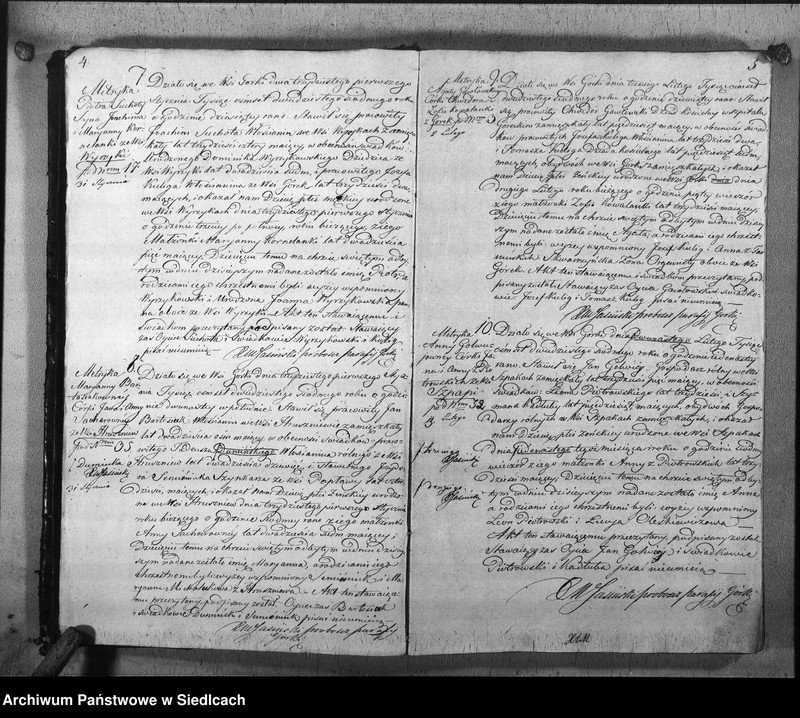 4
7
Metryka
Piotra Suchoty
Syna Joachima
i Maryanny Kor
nelanki ze Wsi
Wyrzyki
pod Nrem 17
31 Stycznia
Działo się we Wsi Gorki dnia trzydziestego pierwszego
Stycznia Tysiąc osmset dwudziestego siodmego roku
o godzinie dziesiątey rano. Stawił się pracowity
Joachim Suchota Włościanin we Wsi Wyrzykach zamiesz
kały lat trzydzieści cztery maiący, w obecności świadków
Urodzonego Dominika Wyrzykowskiego Dziedzica ze
Wsi Wyrzyki lat dwadzieścia siedm, i pracowitego Jozefa
Kuliga Włościanina ze Wsi Górek, lat trzydzieści dwa
maiących, i okazał nam Dziecię płci męskiey urodzone
we Wsi Wyrzykach dnia trzydziestego pierwszego Stycznia
o godzinie trzeciey po północy roku bieżącego z iego
Małżonki Maryanny Kornelanki lat dwadzieścia
pięć maiącey. Dziecięciu temu na chrzcie świętym odby
tym w dniu dzisieyszym nadane zostało imię Piotr, a
rodzicami iego chrzestnemi byli wyżey wspomniony
Wyrzykowski i Urodzona Joanna Wyrzykowska pan
na oboie ze Wsi Wyrzyk. Akt ten Stawaiącemu i
Świadkom przeczytany podpisany został Stawaiący
zaś Oyciec Suchota i Świadkowie Wyrzykowski i Kulig
pisać nieumieią.
X M Jasinski proboszcz parafij Górki
8
Metryka
Maryanny Bar
tosiakowney
Córki Jana i Anny
Sacharewney
ze Wsi Hruszniew
pod Nrem 35
31 Stycznia
Działo się we Wsi Gorki dnia trzydziestego pierwszego Sty
cznia Tysiąc osmset dwudziestego siodmego roku o godzi
nie dwunastey w południe. Stawił się pracowity Jan
Bartosiak Włościanin we Wsi Hruszniewie zamieszkały
lat dwadzieścia osm maiący w obecności świadków: praco
witego Tadeusza Duminskiego Włościanina rolnego ze Wsi
Hruszniew lat dwadzieścia dziewięć i Sławetnego Jędrze
ia Semieniuka Szynkarza ze Wsi Popławy lat czter
dzieści, maiących, i okazał nam Dziecię płci Żeńskiey urodzo
ne we Wsi Hruszniew dnia trzydziestego pierwszego Stycznia
roku bieżącego o godzinie siodmey rano z iego małżonki
Anny Sacharowney lat dwadzieścia siedm maiącey
Dziecięciu temu na chrzcie świętym odbytym w dniu dzisiey
szym nadane zostało imię Maryanna, a rodzicami iego
chrzestnemi byli wyżey wspomniony Semieniuk i Ma
ryanna ze Hruszniewa. Akt ten stawaiące
mu przeczytany, podpisany został. Oyciec zaś Bartosiak
i świadkowie Duminski i Semieniuk pisać nieumieią
X M Jasinski proboszcz parafij
Górki
5
9
Metryka
Agaty Gawłowskiey
Córki Chwedora i
Zofii Kowalanki
z Górek pod Nrem 3
3 Lutego
Działo się we Wsi Gorki dnia trzeciego Lutego Tysiąc osmset
dwudziestego siodmego roku o godzinie dziewiątey rano. Stawił
się pracowity Chwedor Gawłowski Dziad kościelny w szpitalu
Goreckim zamieszkały lat sześćdziesiąt maiący, w obecności świad
ków pracowitych Jozefa Kuliga Włościanina lat trzydzieści dwa
i Tomasza Kuliga Dziada kościelnego lat pięćdziesiąt siedm
maiących, obydwóch we Wsi Górki zamieszkałych, i okazał
nam Dziecię płci żeńskiey urodzone we Wsi Górki dnia
drugiego Lutego roku bieżącego o godzinie piątey wieczor
z iego małżonki Zofii Kowalanki lat trzydzieści maiącey.
Dziecięciu temu na chrzcie świętym odbytym w dniu dzisiey
szym nadane zostało imię Agata, a rodzicami iego chrzest
nemi byli wyżey wspomniony Jozef Kulig i Anna z Ja
Skwarzyńska Żona Organisty oboie ze Wsi
Górek. Akt ten stawaiącemu i świadkom przeczytany, pod
pisany został. Stawaiący zaś Oyciec Gawłowski i świadko
wie Jozef Kulig i Tomasz Kulig pisać nieumieią.
X M Jasinski proboszcz parafij Górki
10
Metryka
Anny
Córki Ja
na i Anny z Pio
trowskich ze Wsi
Szpaki
pod Nrem 32
Lutego
Działo się we Wsi Górki dnia Lutego Tysiąc
osmset dwudziestego siodmego roku o godzinie iedenastey
rano. Stawił się Jan Gospodarz rolny we Wsi
Szpakach zamieszkały lat trzydzieści pięć maiący, w obecności
Świadków: Leona Piotrowskiego lat trzydzieści, i Szy
mona Kadłuby lat pięćdziesiąt maiących, obydwoch Gospo
darzy rolnych z Wsi Szpakach zamieszkałych, i okazał
nam Dziecię płci żeńskiey urodzone we Wsi Szpakach
dnia tegoż miesiąca roku, o godzinie siodmey
wieczor z iego małżonki Anny z Piotrowskich lat trzy
dzieści maiącey. Dziecięciu temu na chrzcie świętym odby
tym w dniu dzisieyszym nadane zostało imię Anna
a rodzicami iego chrzestnemi byli: wyżey wspomniony
Leon Piotrowski i Oleskiewiczowa.
Akt ten stawaiącemu przeczytany, podpisany został.
Stawaiący zaś Oyciec Jan i świadkowie
Piotrowski i Kadłuba pisać nieumieią
X M Jasinski proboszcz parafij Górki
Archiwum Państwowe w Siedlcach